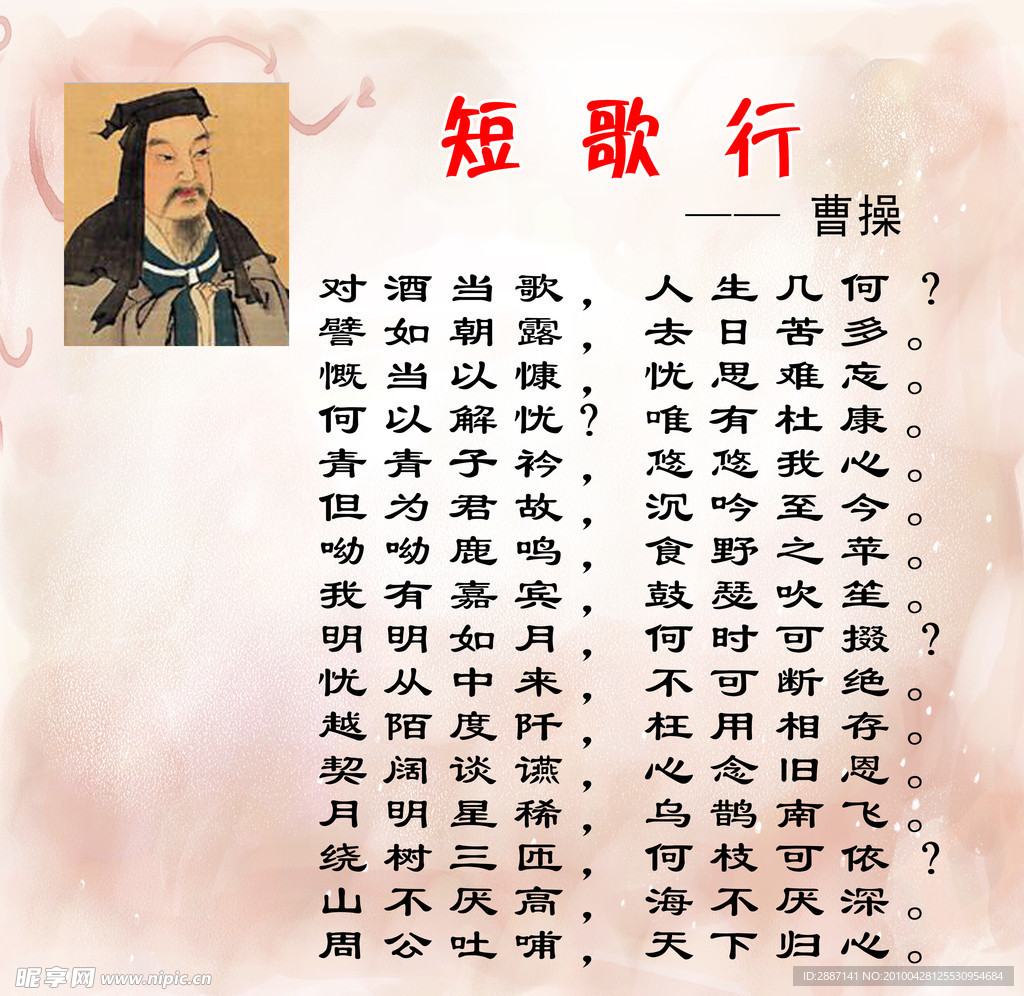 短歌行
—— 曹操
对酒当歌，人生几何？
譬如朝露，去日苦多。
慨当以慷，忧思难忘。
何以解忧？唯有杜康。
青青子衿，悠悠我心。
但为君故，沉吟至今。
呦呦鹿鸣，食野之苹。
我有嘉宾，鼓瑟吹笙。
明明如月，何时可掇？
忧从中来，不可断绝。
越陌度阡，枉用相存。
契阔谈讌，心念旧恩。
月明星稀，乌鹊南飞。
绕树三匝，何枝可依？
山不厌高，海不厌深。
周公吐哺，天下归心。
昵享网 www.nipic.cn
ID:2887141 NO:20100428125530954684